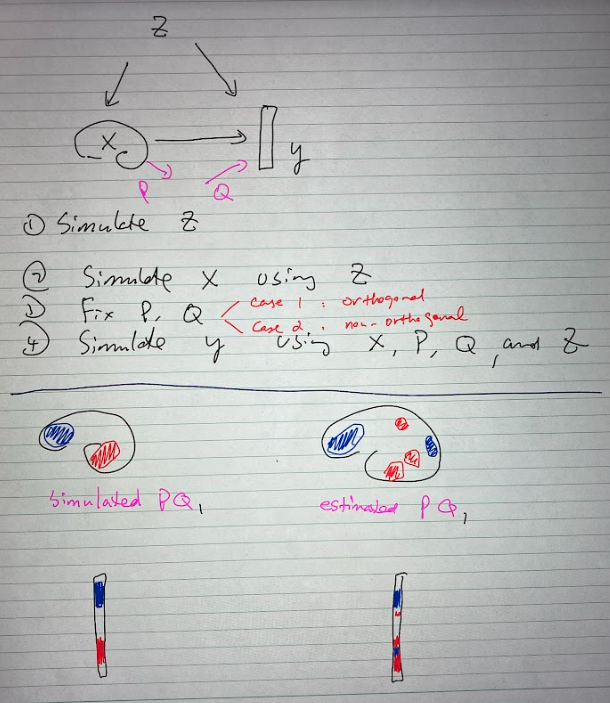 Z
X
y
P
Q
① Simulate Z
② Simulate X using Z
③ Fix P, Q
case 1 : orthogonal
case 2 : non-orthogonal
④ Simulate y using X, P, Q, and Z
Simulated PQ,
estimated PQ,